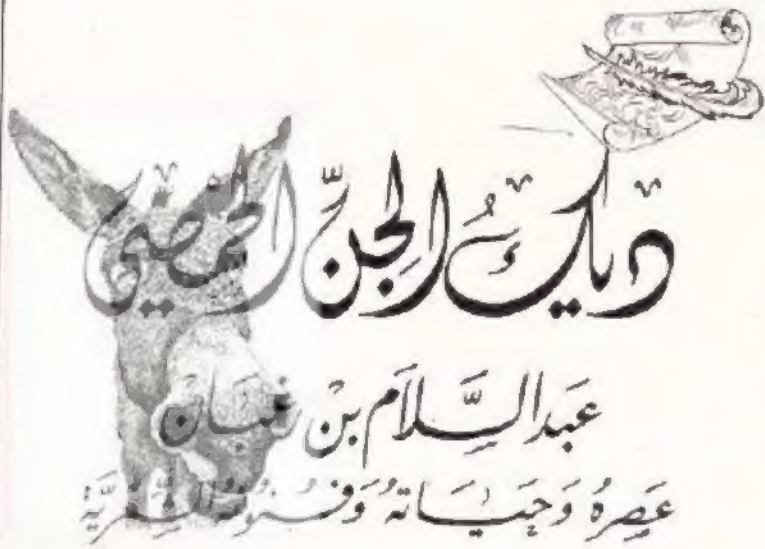 ديكُ الجِنّ الحمصيّ
عَبدالسَّلام بن رَغبَان
عَصرُهُ وَحَيَاتهُ وَفُنُونُهُ الشِّعْريَّة